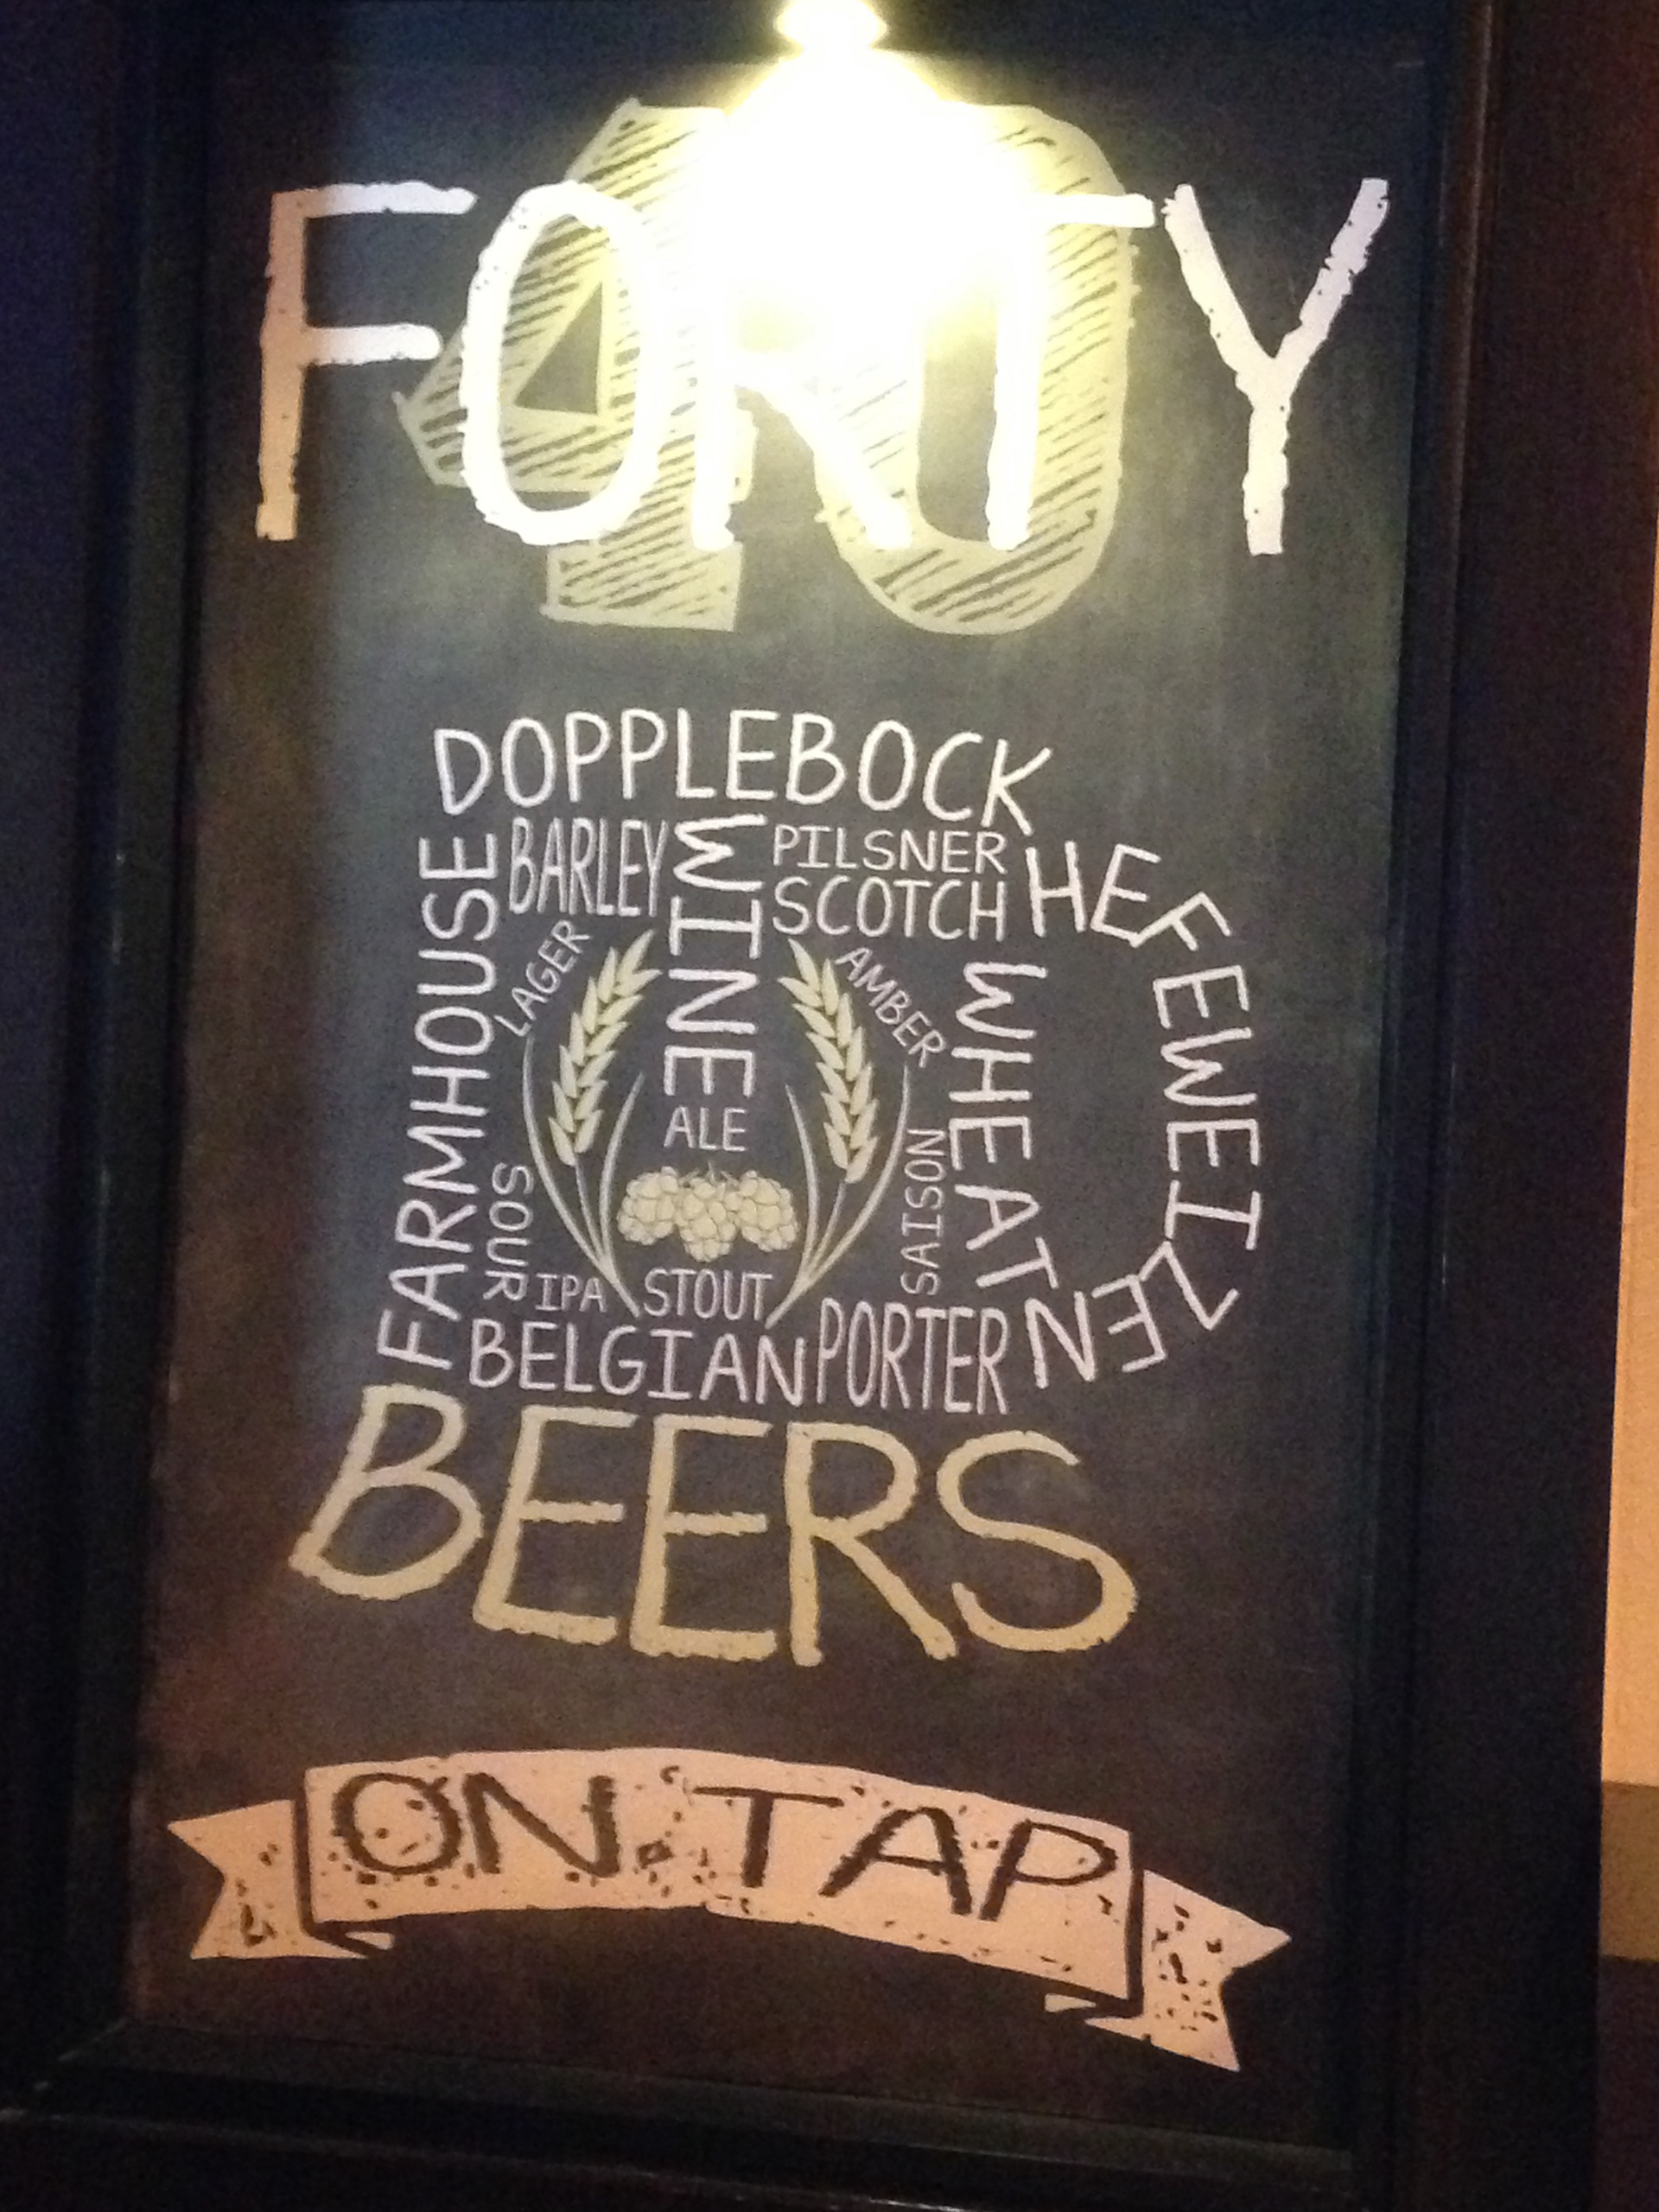 40
FORTY
DOPPLEBOCK
BARLEY
WINE
PILSNER
SCOTCH
HEFEWEIZEN
FARMHOUSE
LAGER
AMBER
WHEAT
ALE
SOUR
SAISON
IPA
STOUT
BELGIAN
PORTER
BEERS
ON TAP